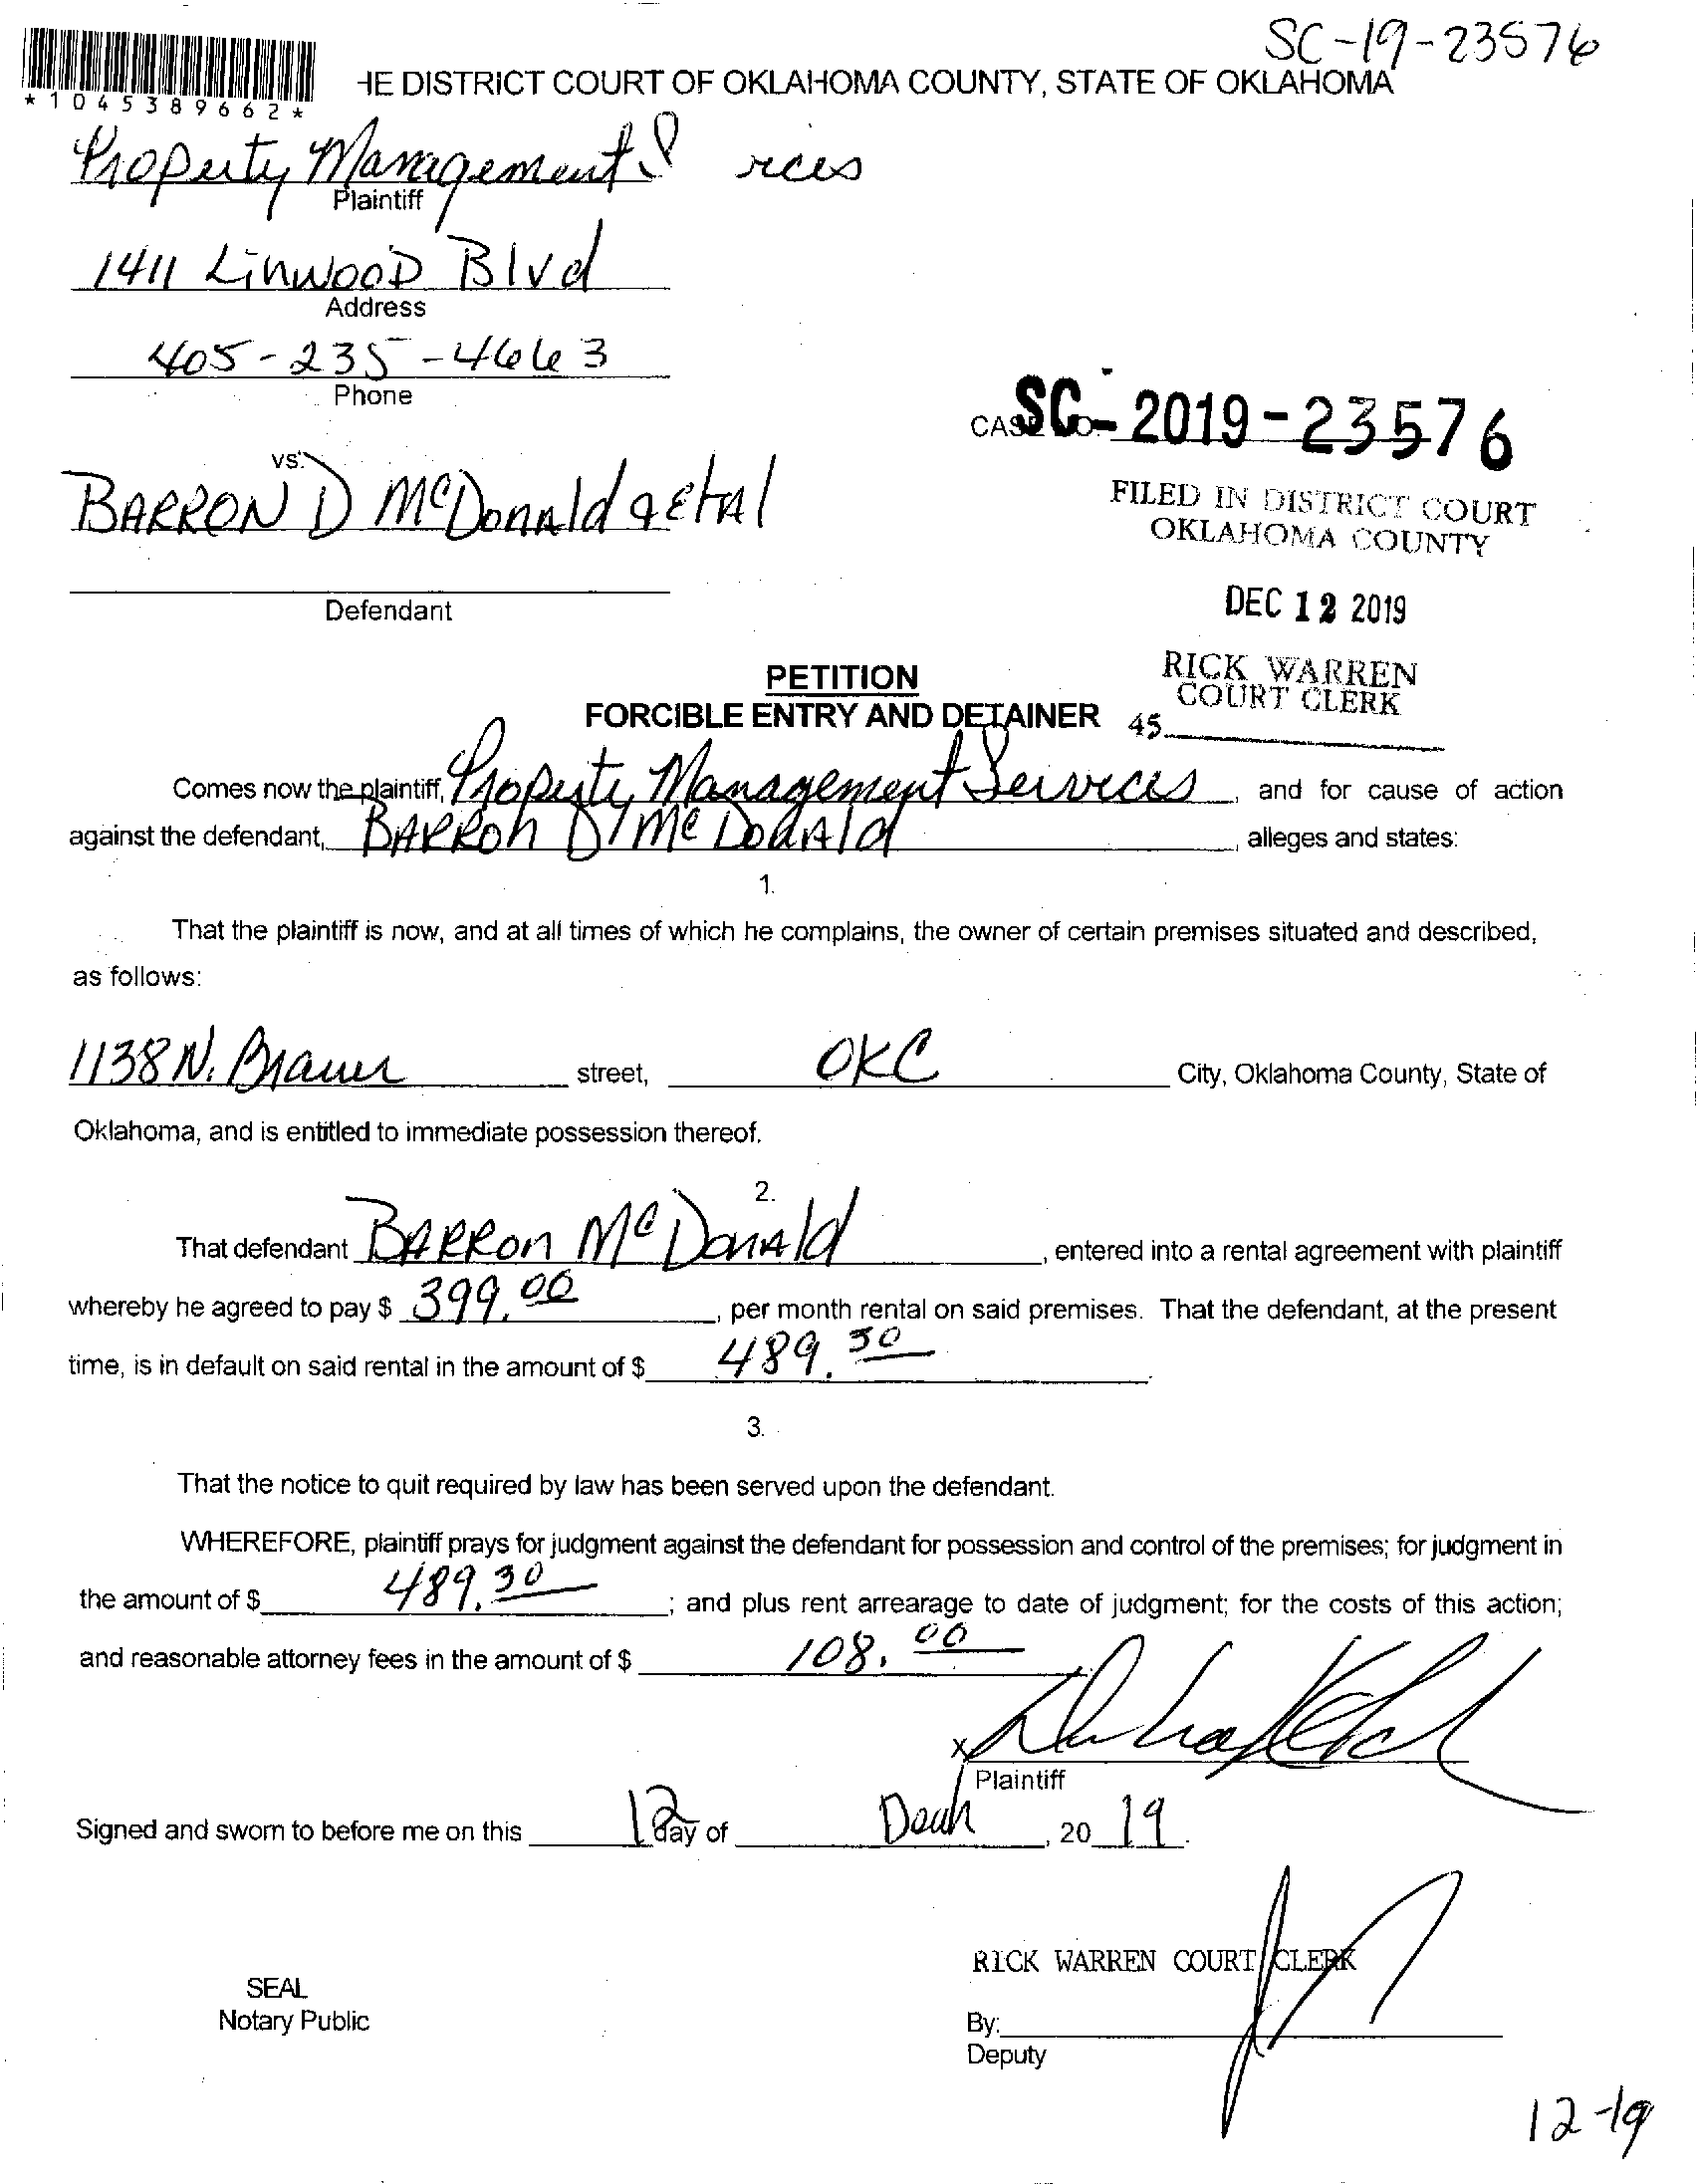 SC-19-23576
*1045389662*
HE DISTRICT COURT OF OKLAHOMA COUNTY, STATE OF OKLAHOMA
Property Management S rces
Plaintiff
1411 LinwooD Blvd
Address
405-235-4663
Phone
CASE NO. SC-2019-23576
vs.
BARRON D McDonald aetal
FILED IN DISTRICT COURT
OKLAHOMA COUNTY
Defendant
DEC 12 2019
RICK WARREN
COURT CLERK
45
PETITION
FORCIBLE ENTRY AND DETAINER
Comes now the plaintiff, Property Management Services, and for cause of action
against the defendant, BARRON D McDonald, alleges and states:
1.
That the plaintiff is now, and at all times of which he complains, the owner of certain premises situated and described,
as follows:
1138 N. Brauer street, OKC City, Oklahoma County, State of
Oklahoma, and is entitled to immediate possession thereof.
2.
That defendant BARRon McDonald, entered into a rental agreement with plaintiff
whereby he agreed to pay $ 399.00, per month rental on said premises. That the defendant, at the present
time, is in default on said rental in the amount of $ 489.30.
3.
That the notice to quit required by law has been served upon the defendant.
WHEREFORE, plaintiff prays for judgment against the defendant for possession and control of the premises; for judgment in
the amount of $ 489.30; and plus rent arrearage to date of judgment; for the costs of this action;
and reasonable attorney fees in the amount of $ 108.00
x
Plaintiff
Signed and sworn to before me on this 12 day of , 20 19.
RICK WARREN COURT CLERK
SEAL
Notary Public
By:
Deputy
12-19